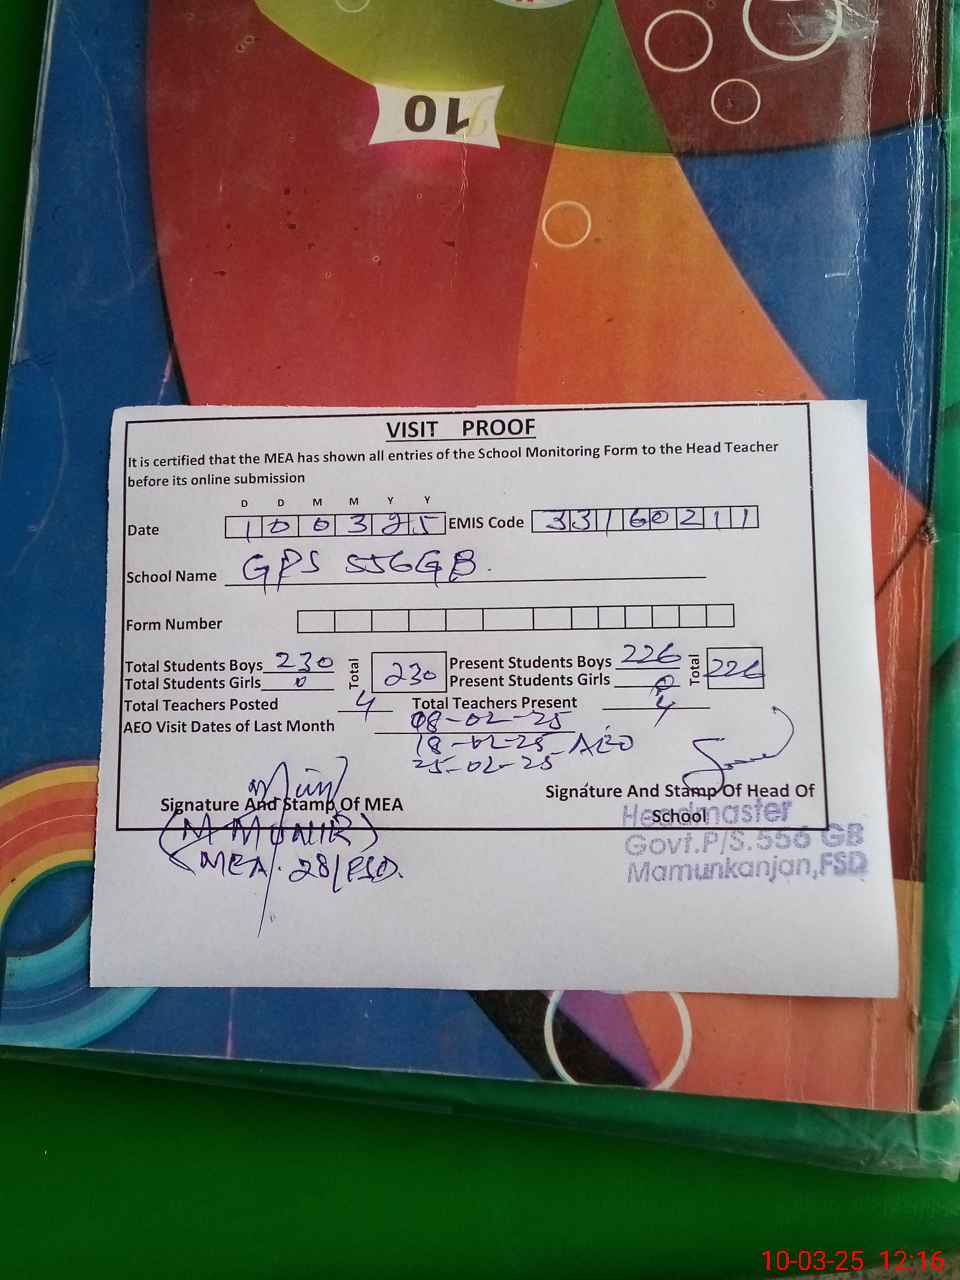 10
VISIT PROOF
It is certified that the MEA has shown all entries of the School Monitoring Form to the Head Teacher
before its online submission
D D M M Y Y
Date 1 0 0 3 2 5 EMIS Code 33160211
School Name GPS 556GB.
Form Number
Total Students Boys 230 Total 230 Present Students Boys 226 Total 226
Total Students Girls 0 Present Students Girls 0
Total Teachers Posted 4 Total Teachers Present 4
AEO Visit Dates of Last Month 08-02-25
18-02-25- AEO
25-02-25
Signature And Stamp Of MEA
Signature And Stamp Of Head Of
School
(M MUNIR)
MEA. 28/FSD.
Headmaster
Govt.P/S.556 GB
Mamunkanjan,FSD
10-03-25 12:16